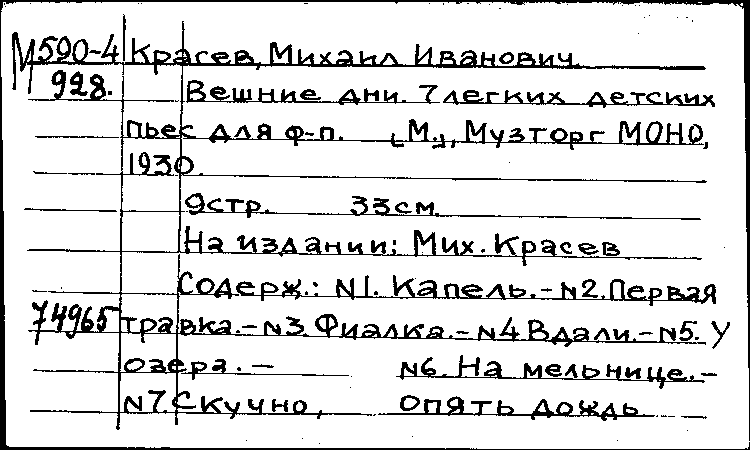 М590-4 Красев, Михаил Иванович.
928. Вешние дни. 7 легких детских
пьес для ф-п. [М.], Музторг МОНО,
1930.
9стр. 33см.
На издании: Мих. Красев
Содерж.: N1. Капель. - N2. Первая
74965 травка. - N3. Фиалка. - N4 Вдали. - N5. У
озера. - N6. На мельнице. -
N7. Скучно, опять дождь